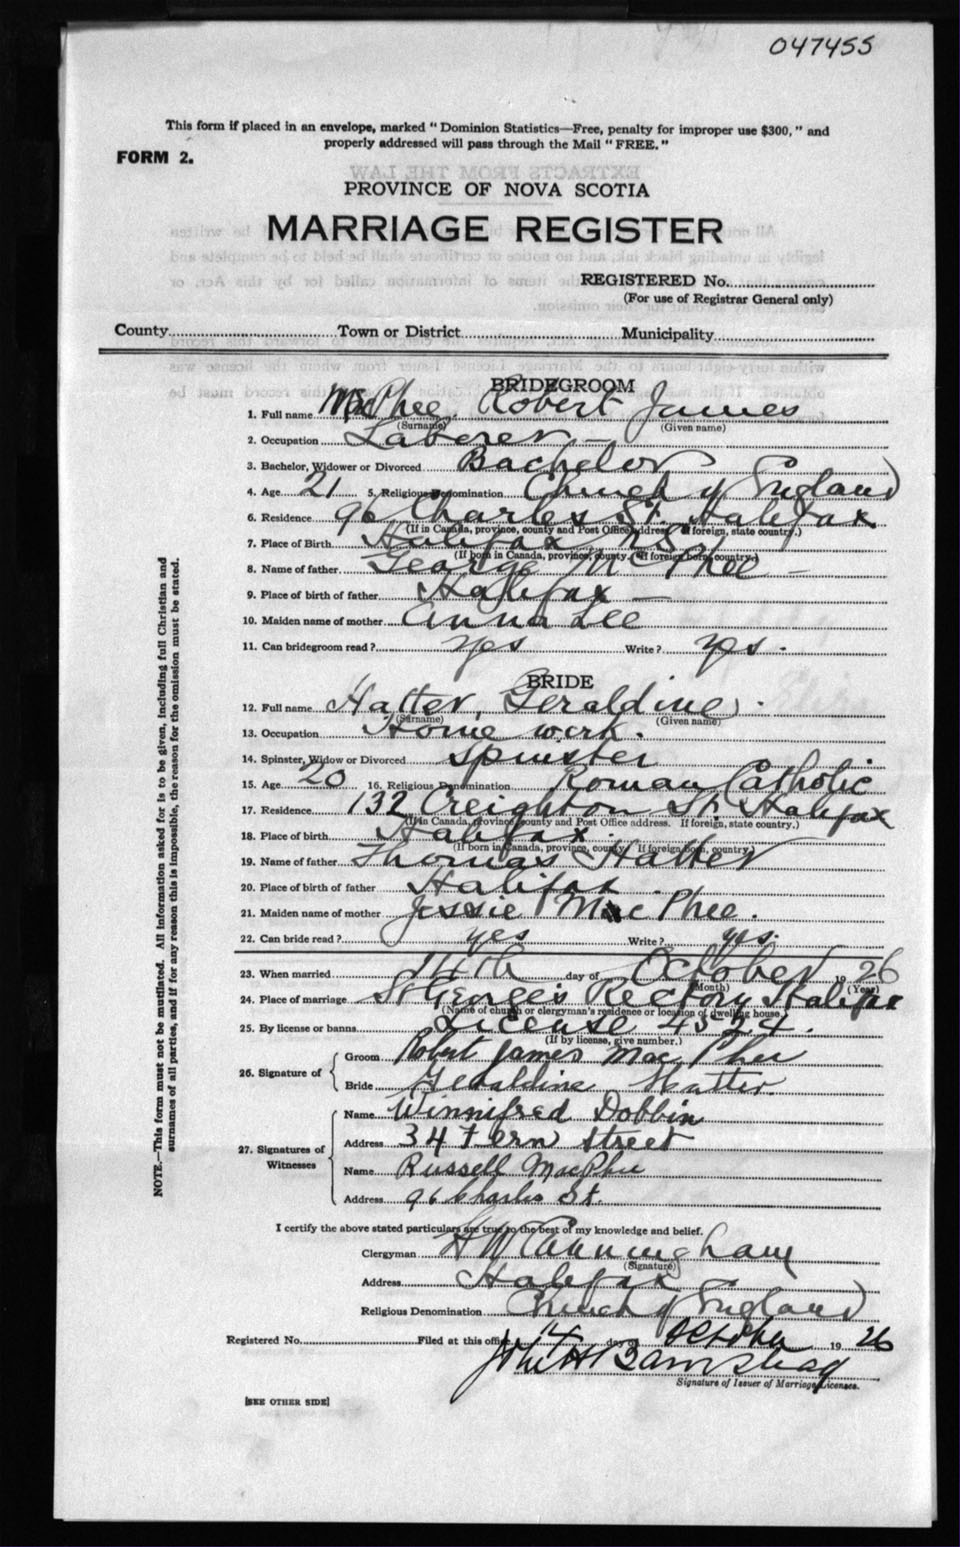 047455
This form if placed in an envelope, marked " Dominion Statistics—Free, penalty for improper use $300, " and
properly addressed will pass through the Mail " FREE. "
FORM 2.
PROVINCE OF NOVA SCOTIA
MARRIAGE REGISTER
REGISTERED No.
(For use of Registrar General only)
County Town or District Municipality
BRIDEGROOM
1. Full name MacPhee, Robert James
(Surname) (Given name)
2. Occupation Laborer –
3. Bachelor, Widower or Divorced Bachelor
4. Age 21 5. Religious Denomination Church of England
6. Residence 96 Charles St. Halifax
(If in Canada, province, county and Post Office address. If foreign, state country.)
7. Place of Birth Halifax N.S.
(If born in Canada, province, county. If foreign born, country.)
8. Name of father George McPhee –
9. Place of birth of father Halifax –
10. Maiden name of mother Anna Lee
11. Can bridegroom read? yes Write? yes.
BRIDE
12. Full name Hatter, Geraldine.
(Surname) (Given name)
13. Occupation Home work.
14. Spinster, Widow or Divorced Spinster
15. Age 20 16. Religious Denomination Roman Catholic
17. Residence 132 Creighton St. Halifax
(If in Canada, province, county and Post Office address. If foreign, state country.)
18. Place of birth Halifax.
(If born in Canada, province, county. If foreign born, country.)
19. Name of father Thomas Hatter
20. Place of birth of father Halifax.
21. Maiden name of mother Jessie MacPhee.
22. Can bride read? yes Write? yes.
23. When married 14th day of October 1926
(Month) (Year)
24. Place of marriage St George's Rectory Halifax
(Name of church or clergyman's residence or location of dwelling house.)
25. By license or banns License 4544.
(If by license, give number.)
26. Signature of
Groom Robert James MacPhee
Bride Geraldine Hatter.
27. Signatures of Witnesses
Name Winnifred Dobbin
Address 34 Fern Street
Name Russell MacPhee
Address 96 Charles St.
I certify the above stated particulars are true to the best of my knowledge and belief.
Clergyman H W Cunningham
(Signature)
Address Halifax
Religious Denomination Church of England
Registered No. Filed at this office 14 day of October 1926
John H Barnstead
Signature of Issuer of Marriage Licenses.
[SEE OTHER SIDE]
NOTE.—This form must not be mutilated. All information asked for is to be given, including full Christian and
surnames of all parties, and if for any reason this is impossible, the reason for the omission must be stated.